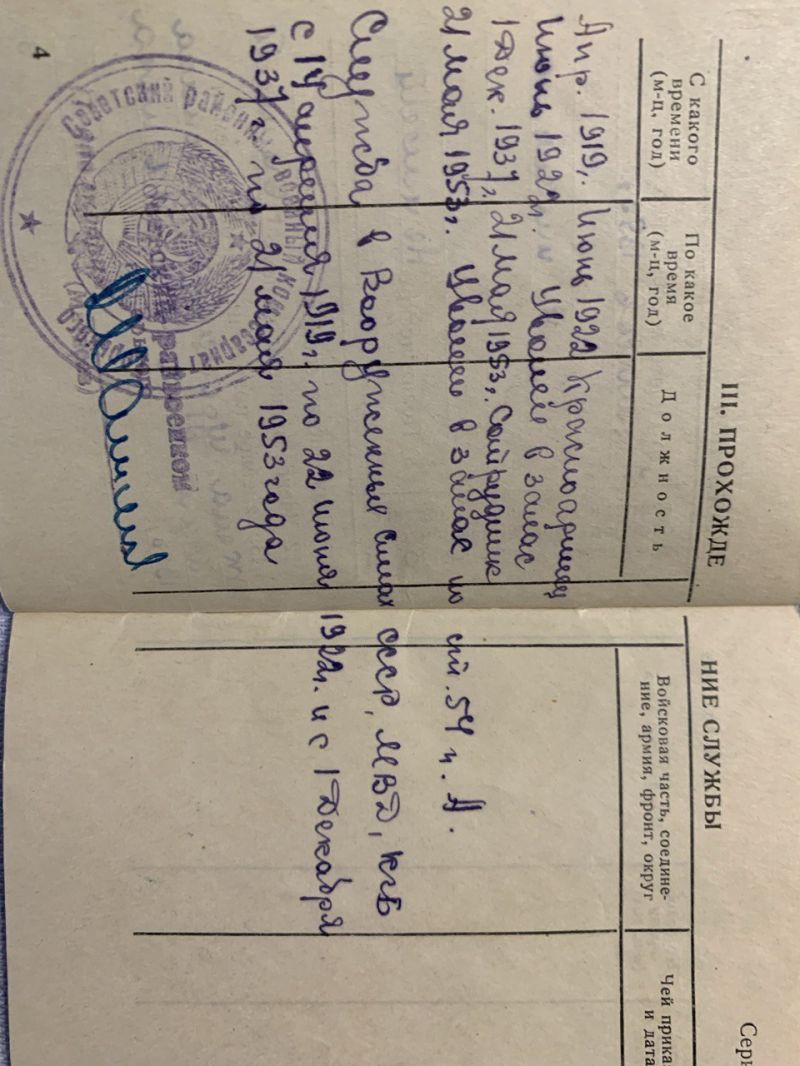 Сери
III. ПРОХОЖДЕНИЕ СЛУЖБЫ
С какого времени (м-ц, год)
По какое время (м-ц, год)
Должность
Войсковая часть, соедине-
ние, армия, фронт, округ
Чей прика
и дата
Апр. 1919г. Июнь 1922 Красноармеец
Июнь 1922г. Уволен в запас
1 Дек. 1937г. 21 мая 1953г. Сотрудник
21 мая 1953г. Уволен в запас по ст. 54 п. А.
Служба в Вооруженных силах СССР, МВД, КГБ
с 14 апреля 1919г. по 22 июня 1922г. и с 1 Декабря
1937г. по 21 мая 1953 года
Советский районный военный комиссариат
4